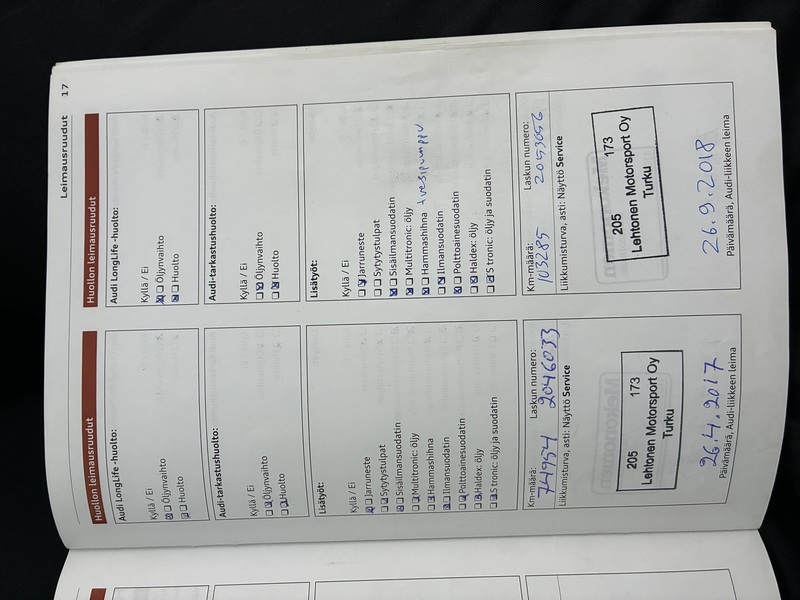 Leimausruudut 17
Huollon leimausruudut
Audi LongLife -huolto:
Kyllä / Ei
Öljynvaihto
Huolto
Audi-tarkastushuolto:
Kyllä / Ei
Öljynvaihto
Huolto
Lisätyöt:
Kyllä / Ei
Jarruneste
Sytytystulpat
Sisäilmansuodatin
Multitronic: öljy
Hammashihna
Ilmansuodatin
Polttoainesuodatin
Haldex: öljy
S tronic: öljy ja suodatin
Km-määrä: Laskun numero:
74954 2046033
Liikkumisturva, asti: Näyttö Service
205 173
Lehtonen Motorsport Oy
Turku
26.4.2017
Päivämäärä, Audi-liikkeen leima
Huollon leimausruudut
Audi LongLife -huolto:
Kyllä / Ei
Öljynvaihto
Huolto
Audi-tarkastushuolto:
Kyllä / Ei
Öljynvaihto
Huolto
Lisätyöt:
Kyllä / Ei
Jarruneste
Sytytystulpat
Sisäilmansuodatin
Multitronic: öljy
Hammashihna + vesipumppu
Ilmansuodatin
Polttoainesuodatin
Haldex: öljy
S tronic: öljy ja suodatin
Km-määrä: Laskun numero:
103285 2053056
Liikkumisturva, asti: Näyttö Service
205 173
Lehtonen Motorsport Oy
Turku
26.9.2018
Päivämäärä, Audi-liikkeen leima